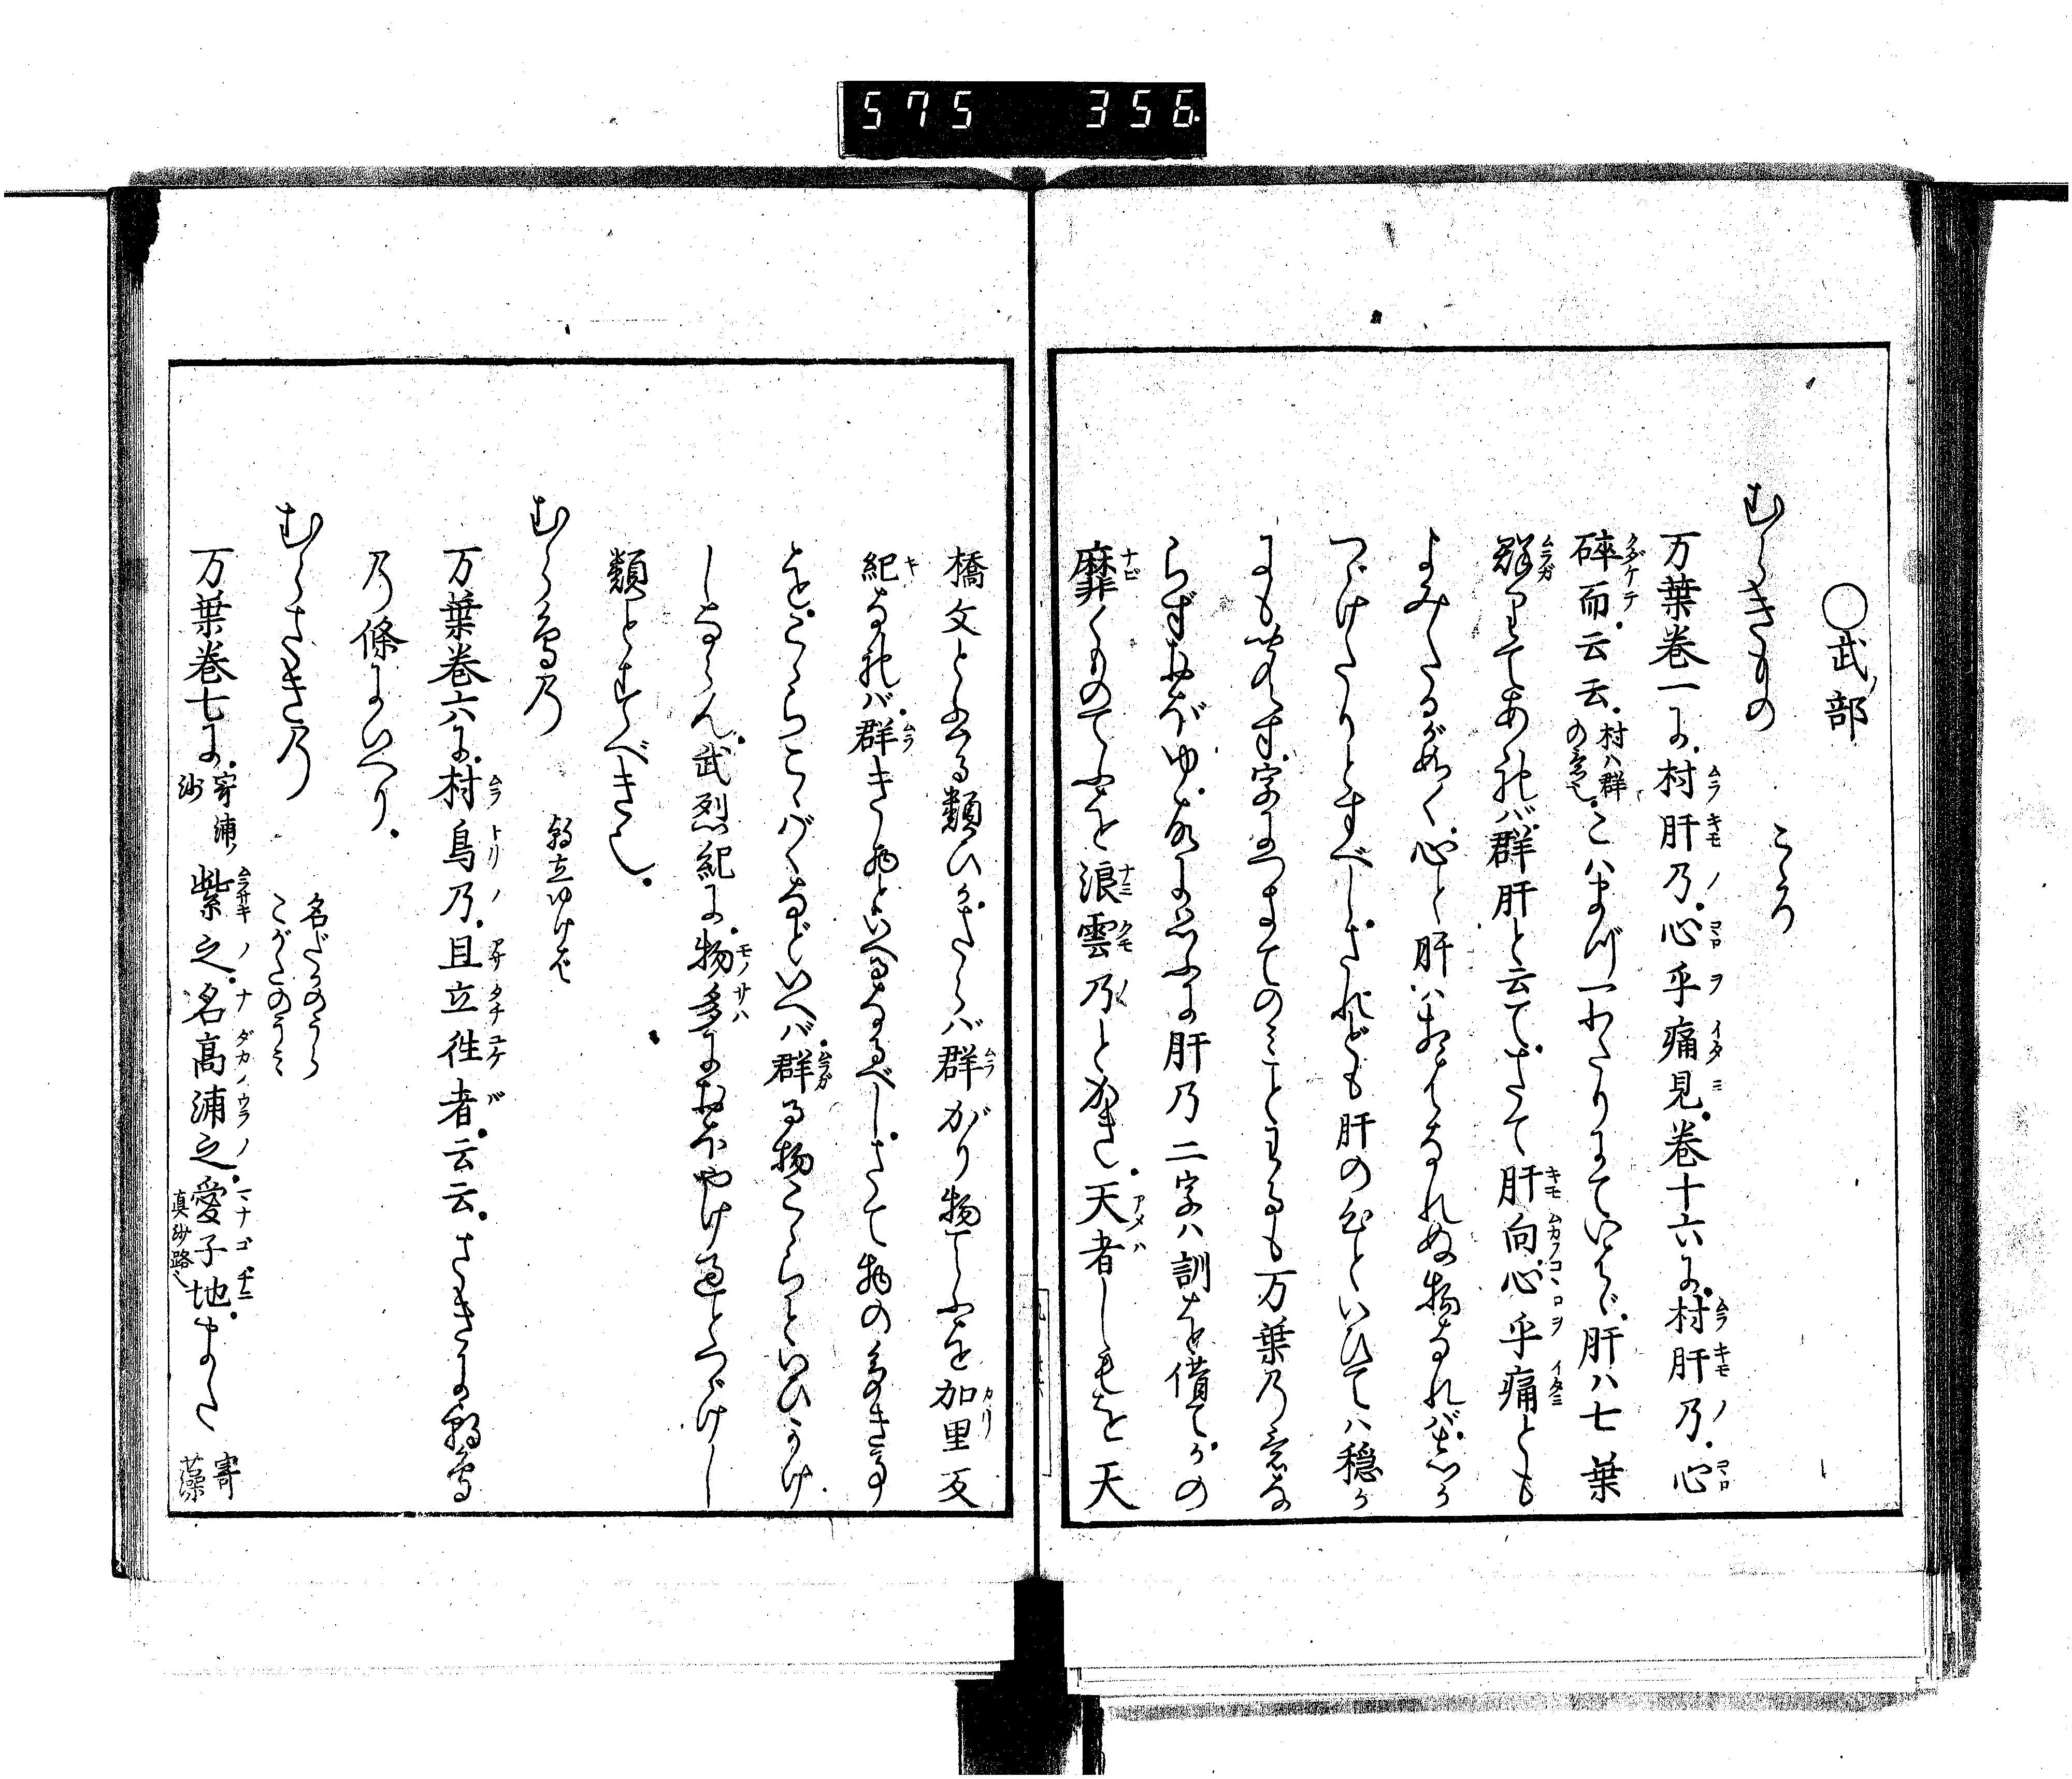 575 356
○武ノ部
むらきもの こゝろ
万葉巻一に。村肝乃。心乎痛見。巻十六に。村肝乃。心
碎而。云云。村ハ群の意也。こハまづ一わたりにていはゞ。肝ハ七葉
群りてあれバ。群肝と云て。さて肝向。心乎痛とも
よみたるがごとく。心と肝ハはなれぬ物なれバ。心に
つゞけたりとすべし。されども肝の心といひてハ穏に
も
らずおぼゆ。故に思ふに肝乃二字ハ訓を借てかの
靡くものてふを浪雲乃とかき。天者しもを天
橋文と云る類ひか。さらバ群がり物てふを加里反
紀なれバ。群きものといへるなるべし。さて物の多き事
を。こゝらこゝばくなどいへバ。群る物こゝらといひかけ
しならん。武烈紀に。物多におほやけ過とつゞけし
類とすべき也。
むら鳥乃 朝立ゆけば
万葉巻六に。村鳥乃。旦立往者。云云。さきの朝鳥
乃條にいへり。
むらさき乃 名だかのうら こがたのうみ
万葉巻七に。寄浦沙 紫之。名高浦之。愛子地。真砂路也 また 寄藻